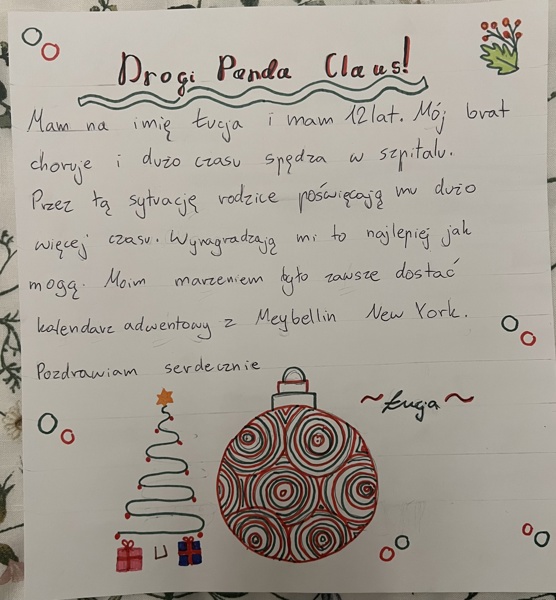 Drogi Panda Claus!
Mam na imię Łucja i mam 12 lat. Mój brat
choruje i dużo czasu spędza w szpitalu.
Przez tą sytuację rodzice poświęcają mu dużo
więcej czasu. Wynagradzają mi to najlepiej jak
mogą. Moim marzeniem było zawsze dostać
kalendarz adwentowy z Meybellin New York.
Pozdrawiam serdecznie
~Łucja~